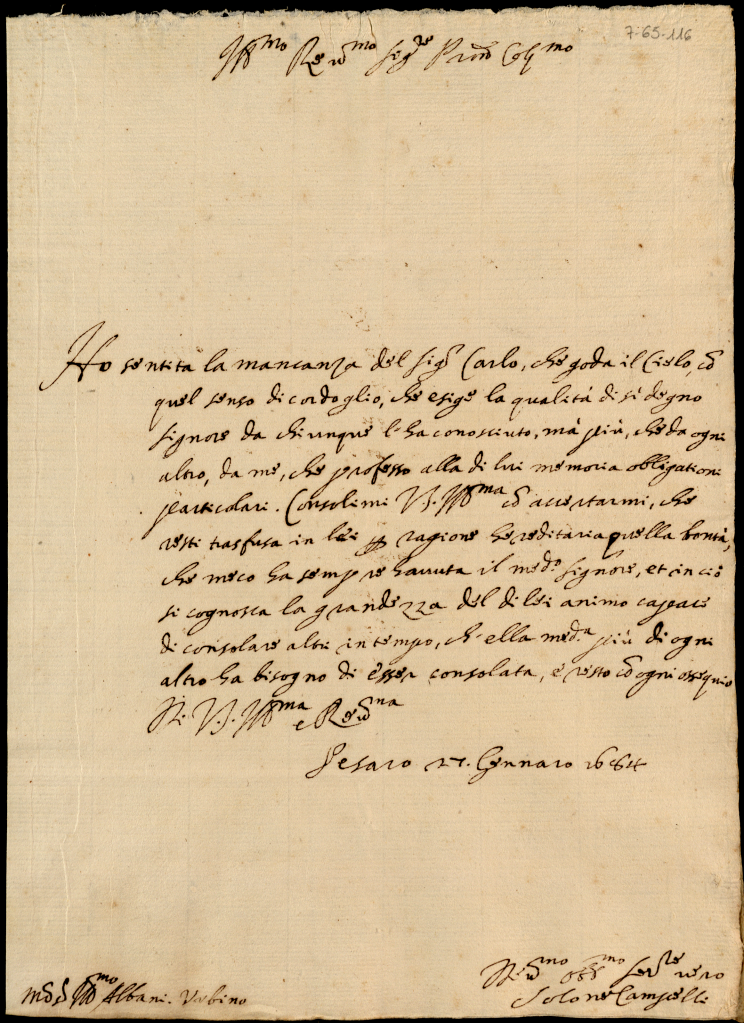 7-65-116
Ill.mo Rev.mo Sig.re P.ron Col.mo
Ho sentita la mancanza del Sig.r Carlo, che goda il Cielo, cõ
quel senso di cordoglio, che esige la qualità di sì degno
signore da chiunque l'ha conosciuto, mà più, che da ogni
altro, da me, che professo alla di lui memoria obligationi
particolari. Consolimi V.S. Ill.ma cõ accertarmi, che
resti trasfusa in lei p ragione hereditaria quella bontà,
che meco ha sempre havuta il med.o Signore, et in ciò
si cognosca la grandezza del di lei animo capace
di consolare altri in tempo, ch'ella med.a più di ogni
altro ha bisogno di esser consolata, e resto cõ ogni ossequio
Di V.S. Ill.ma e Rev.ma
Pesaro 27. Gennaro 1684
Dev.mo Obl.mo Ser.re vero
Mons. Ill.mo Albani. Urbino
Solone Campelli